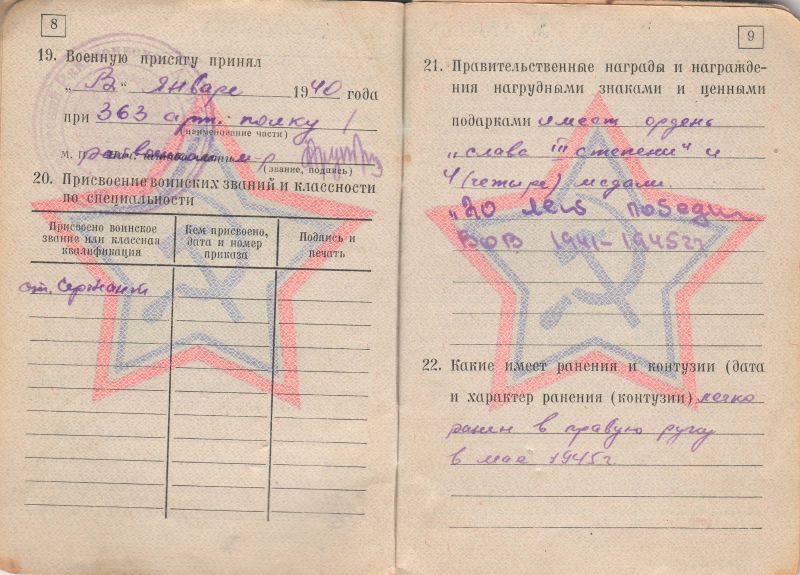 8
19. Военную присягу принял
„В“ январе 1940 года
при 363 арт. полку
(наименование части)
м. п.
(звание, подпись)
20. Присвоение воинских званий и классности
по специальности
Присвоено воинское
звание или классная
квалификация
Кем присвоено,
дата и номер
приказа
Подпись и
печать
ст. Сержант
9
21. Правительственные награды и награжде-
ния нагрудными знаками и ценными
подарками имеет орден
„Слава III степени“ и
4 (четыре) медали.
„20 лет победы
ВОВ 1941-1945гг
22. Какие имеет ранения и контузии (дата
и характер ранения (контузии) легко
ранен в правую руку
в мае 1945г.